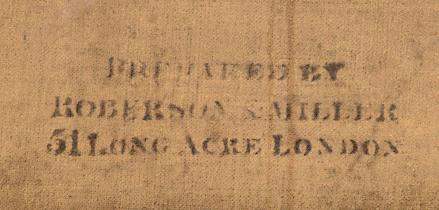 PREPARED BY
ROBERSON & MILLER
51 LONG ACRE LONDON